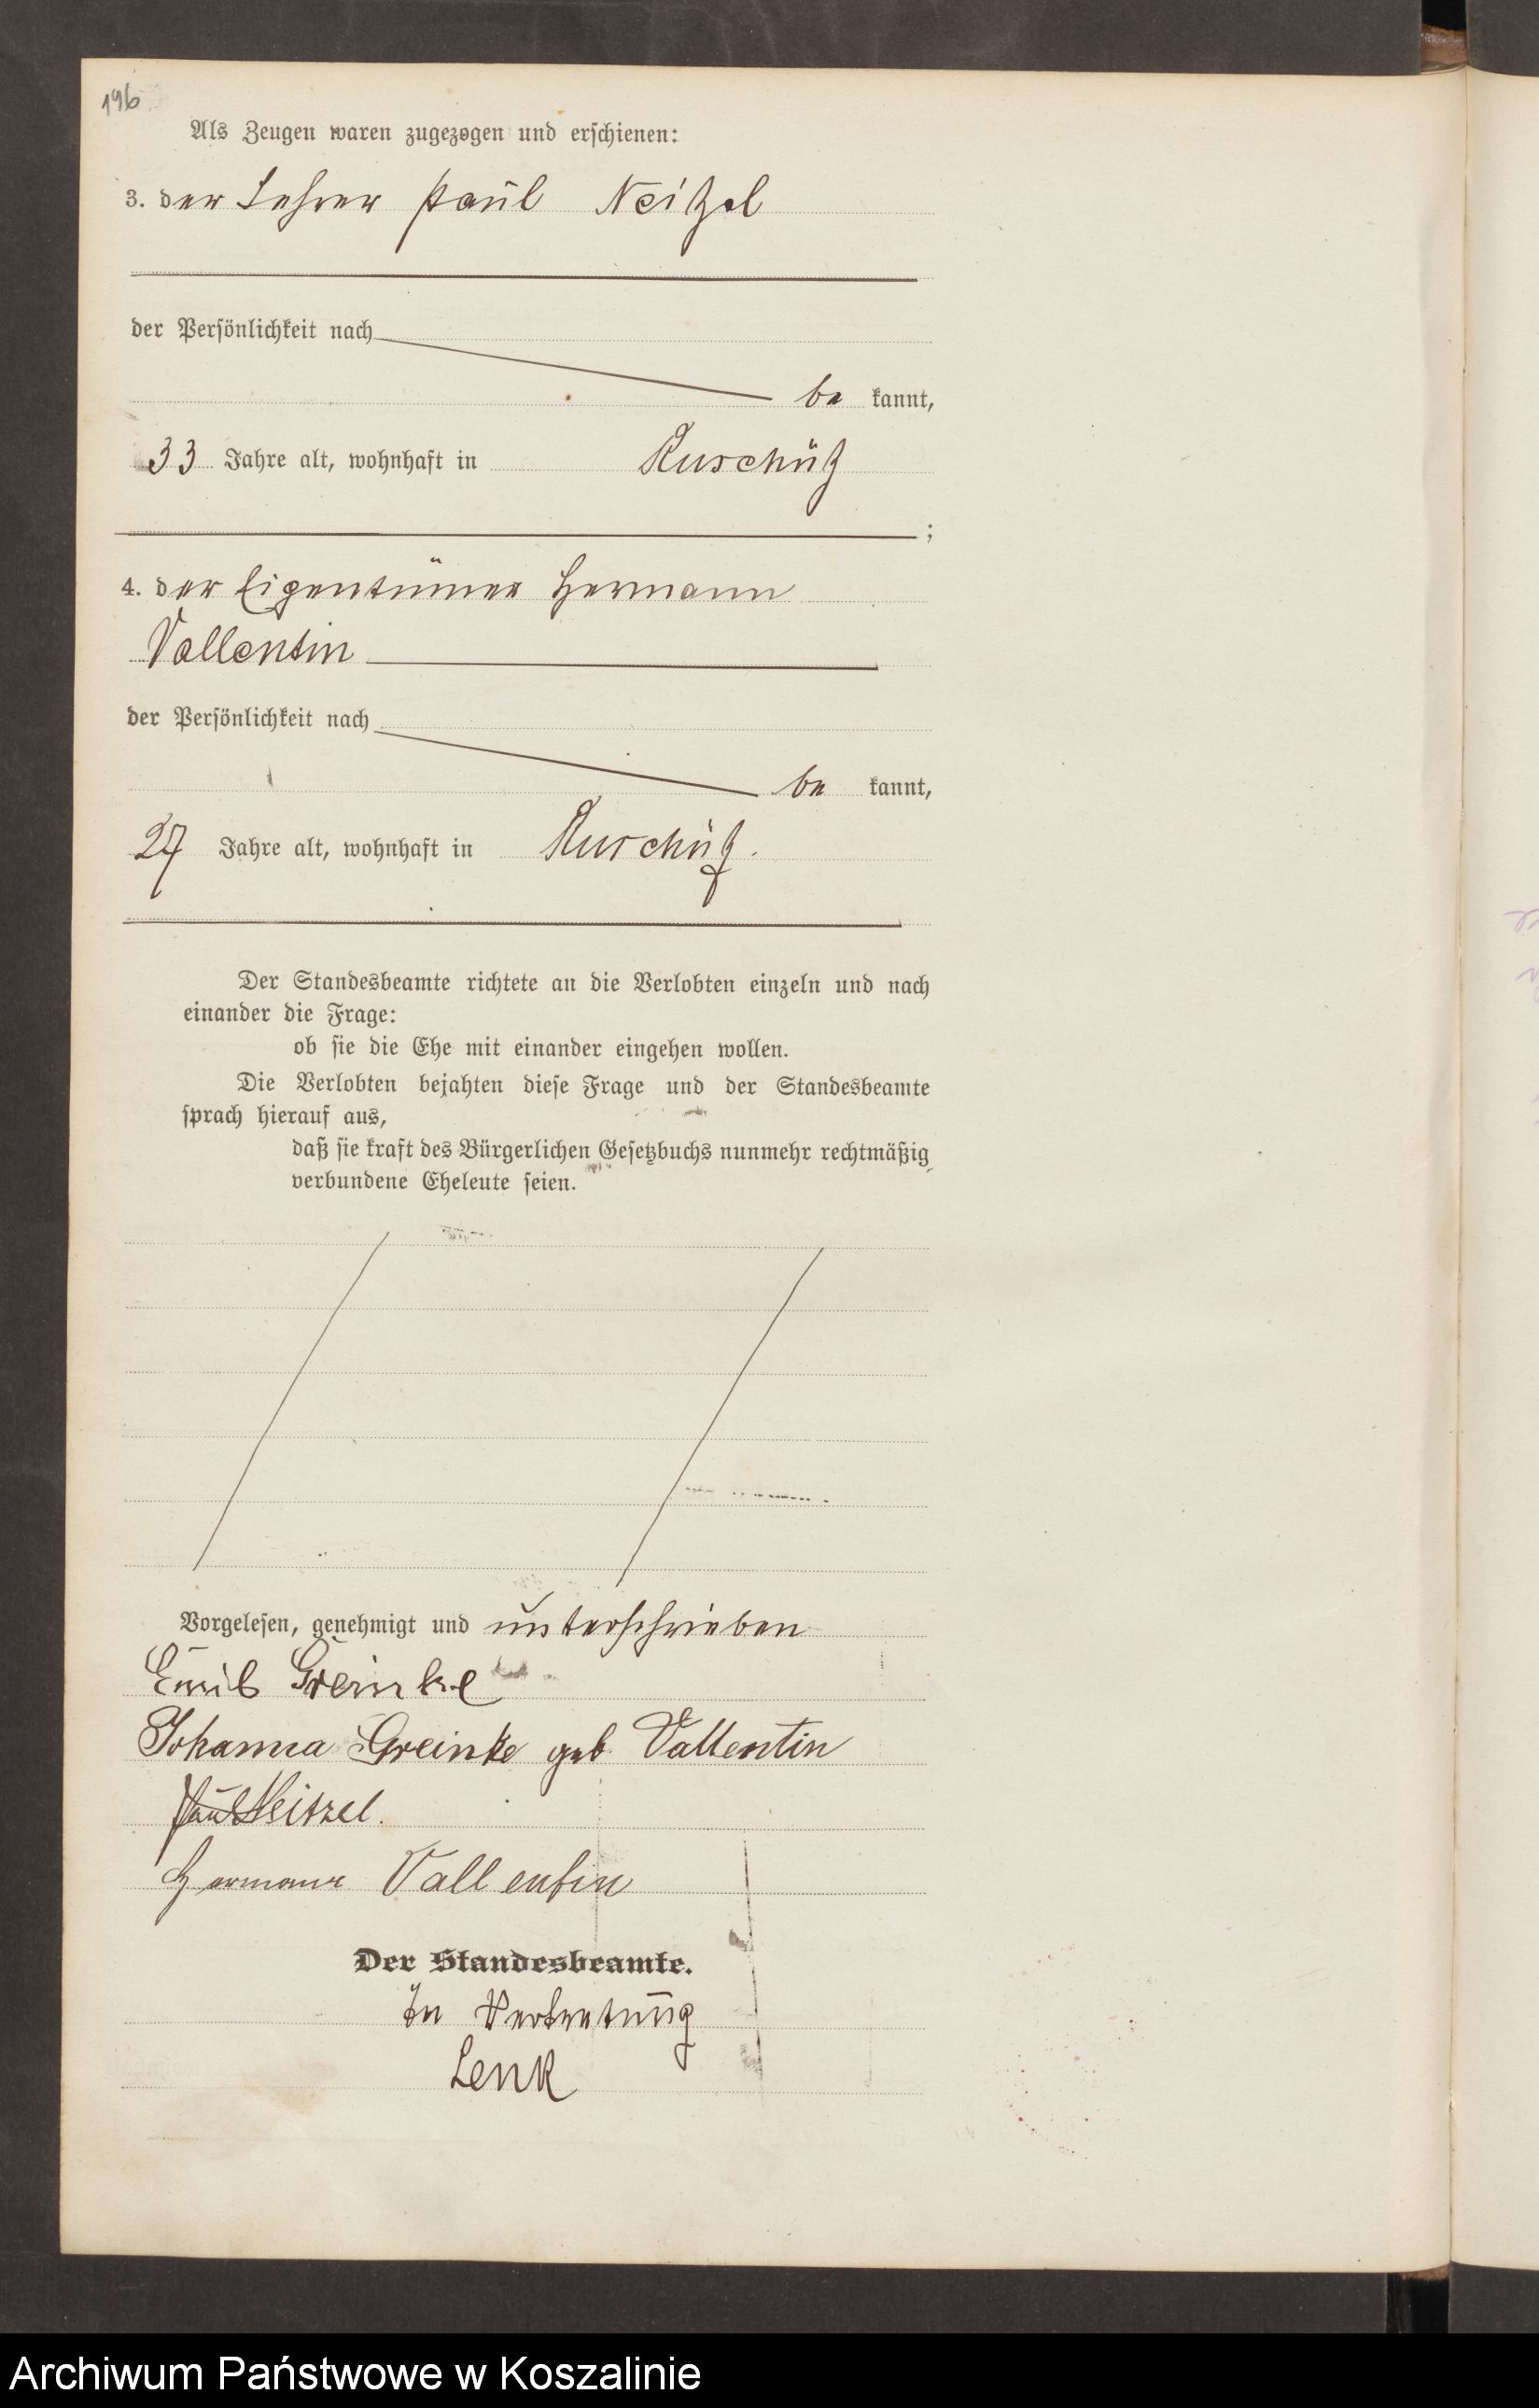 196
Als Zeugen waren zugezogen und erschienen:
3. der Lehrer Paul Neitzel
der Persönlichkeit nach
be kannt,
33 Jahre alt, wohnhaft in Ruschütz
;
4. der Eigentümer Hermann
Vallentin
der Persönlichkeit nach
be kannt,
27 Jahre alt, wohnhaft in Ruschütz.
Der Standesbeamte richtete an die Verlobten einzeln und nach
einander die Frage:
ob sie die Ehe mit einander eingehen wollen.
Die Verlobten bejahten diese Frage und der Standesbeamte
sprach hierauf aus,
daß sie kraft des Bürgerlichen Gesetzbuchs nunmehr rechtmäßig
verbundene Eheleute seien.
Vorgelesen, genehmigt und unterschrieben
Emil Greinke
Johanna Greinke geb. Vallentin
Paul Neitzel.
Hermann Vallentin
Der Standesbeamte.
In Vertretung
Lenk
Archiwum Państwowe w Koszalinie